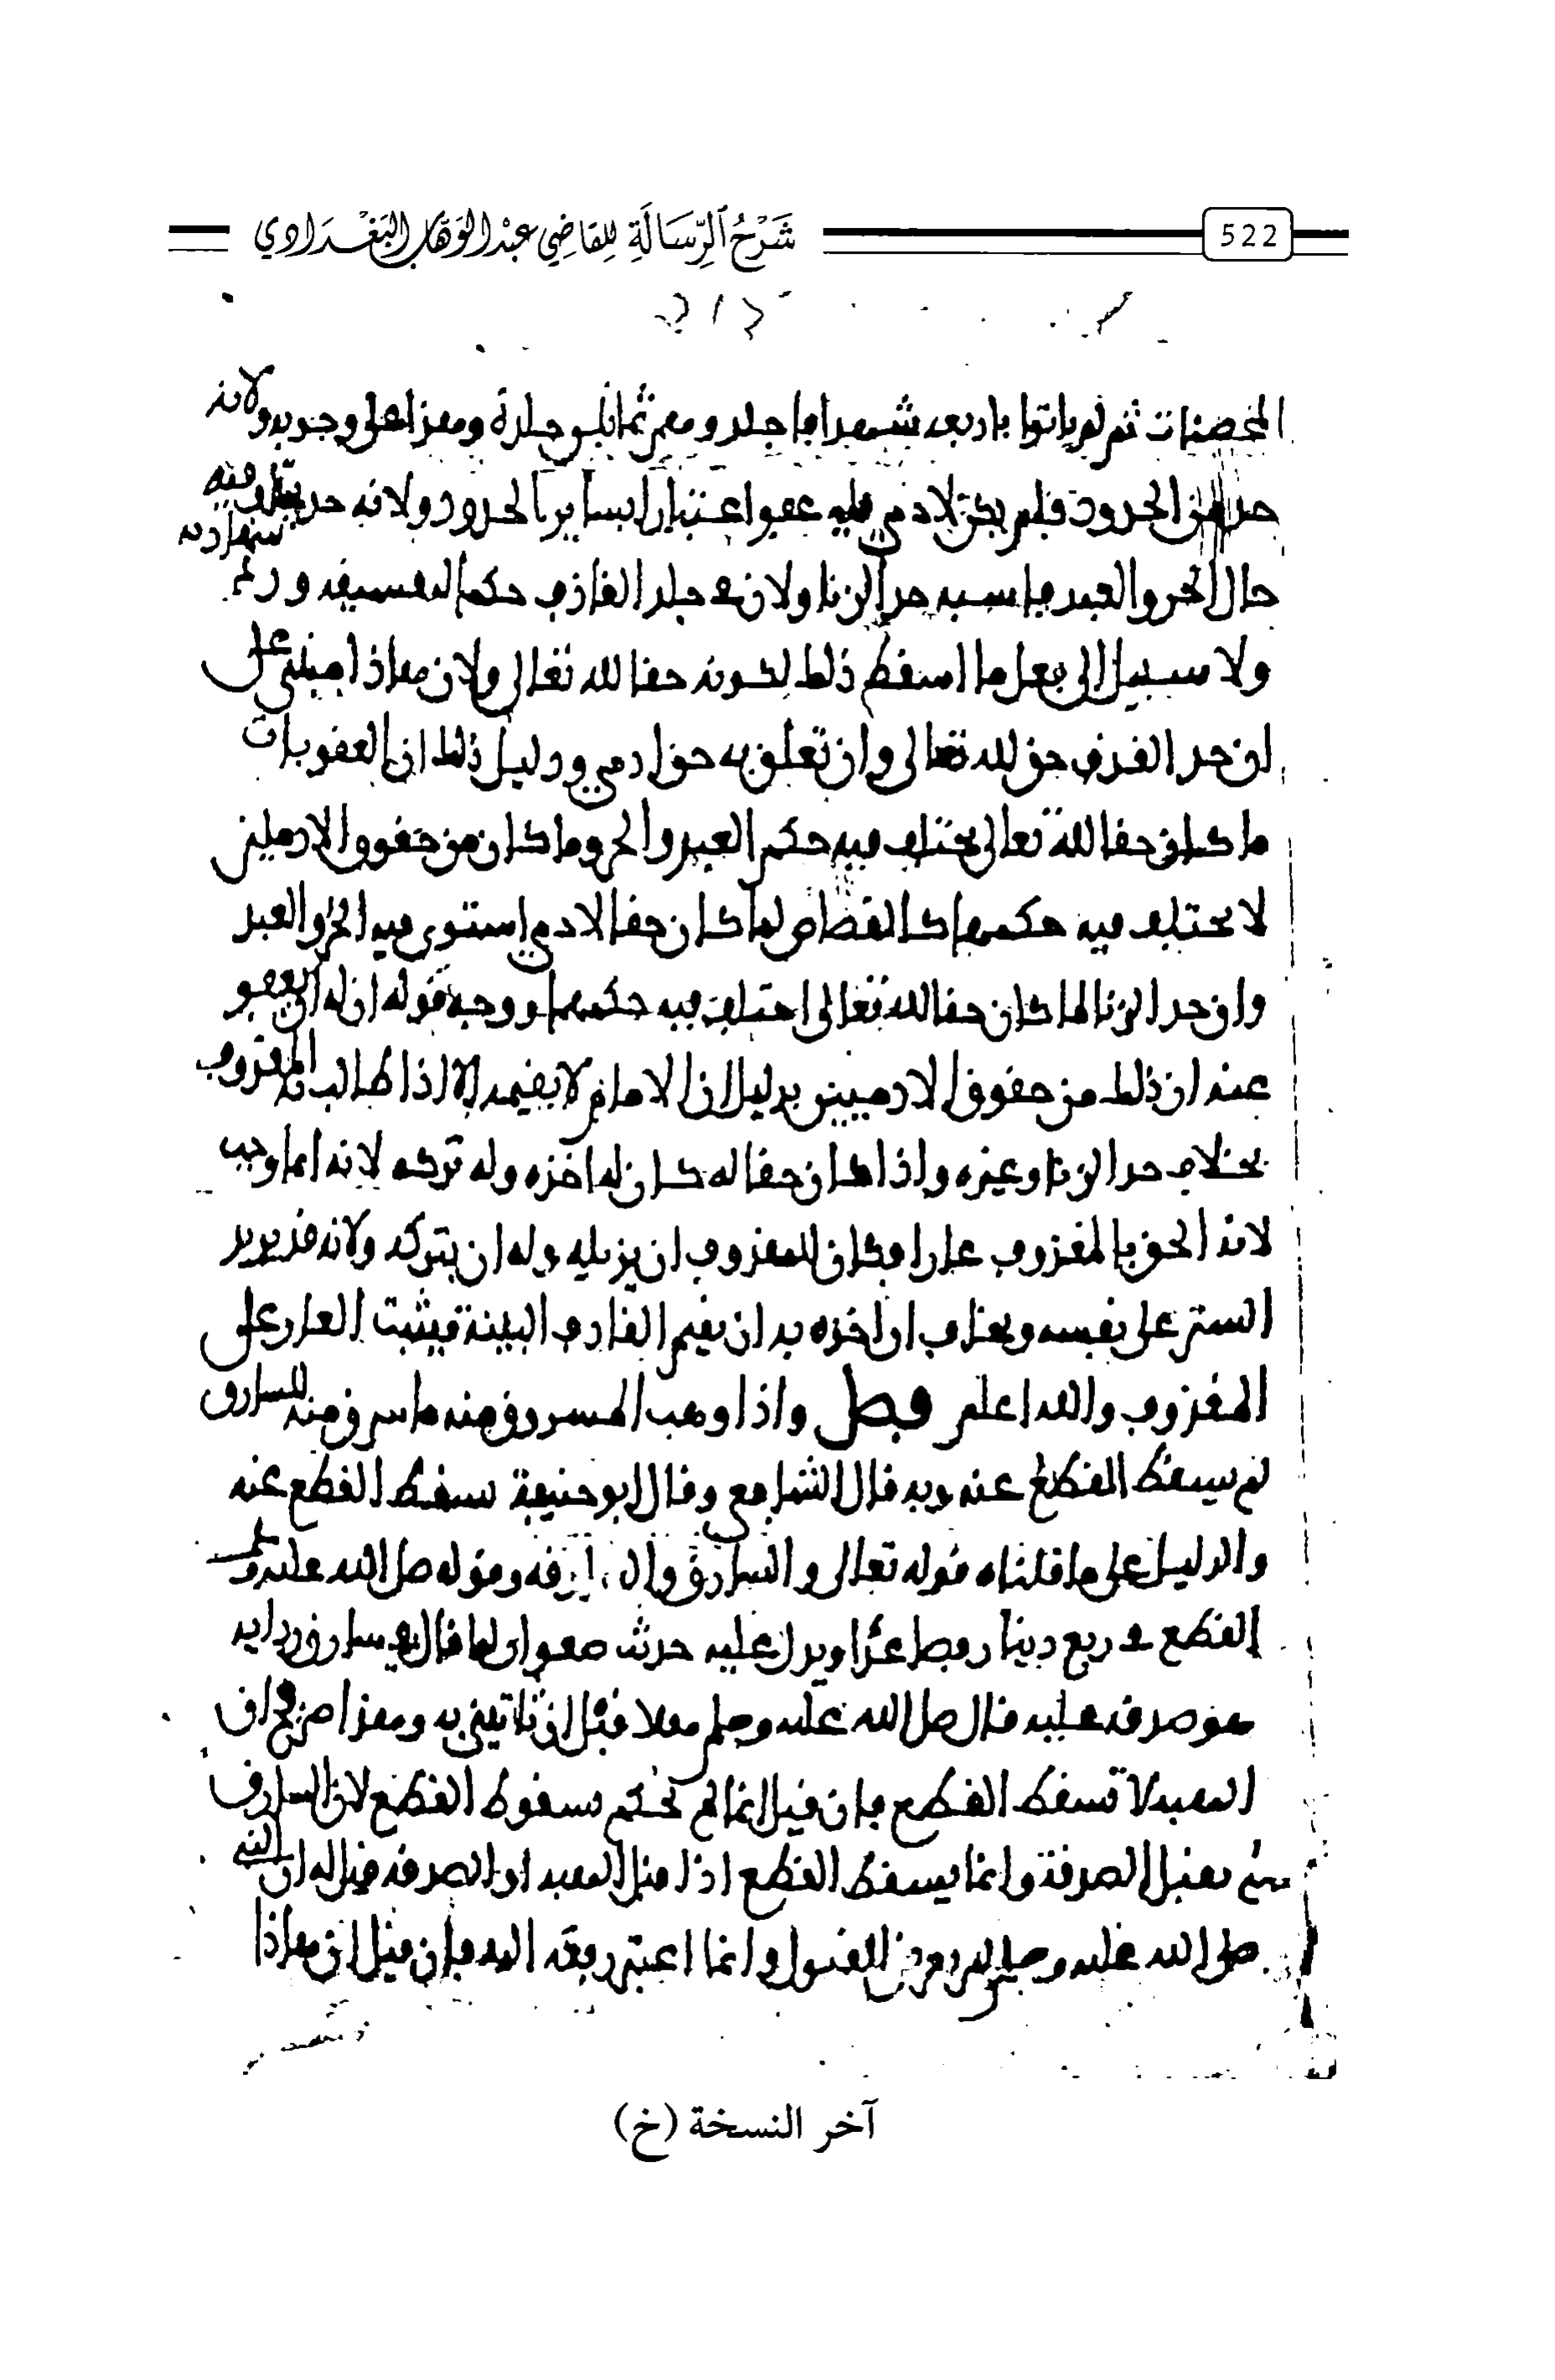 522
شَرْحُ الرِّسَالَةِ لِلقَاضِي عَبْدِ الوَهَّابِ البَغْدَادِي
المحصنات ثم لم ياتوا باربعه شهدا فاجلدوهم ثمانين جلدة وهذا على وجوبه ولانه
حد من الحدود فلم يكن لادمي فيه عفو اعتبارا بساير الحدود ولانه حد يختلف فيه
حال الحر والعبد فاشبه حد الزنا ولان في جلد القاذف حكما لله تفسيقه ورد شهادته
ولا سبيل الى فعل ما اسقط ذلك لكونه حقا لله تعالى ولان هاذا مبني على
ان حد القذف حق لله تعالى وان تعلق به حق ادمي ودليل ذلك ان العقوبات
ما كان حقا لله تعالى يختلف فيه حكم العبد والحر وما كان من حقوق الادميين
لا يختلف فيه حكمهما كالقصاص لما كان حقا لادمي استوى فيه الحر والعبد
وان حد الزنا لما كان حقا لله تعالى اختلف فيه حكمهما ووجه قوله ان له ان يعفو
عنه ان ذلك من حقوق الادميين بدليل ان الامام لا يقيمه الا اذا طالب به المقذوف
بخلاف حد الزنا وغيره واذا كان حقا له كان له اخذه وله تركه لانه انما وجب
لانه الحق بالمقذوف عارا فكان للمقذوف ان يزيله وله ان يتركه ولانه قد يريد
الستر على نفسه ويخاف ان اخذه به ان يقيم القاذف البينة فيثبت العار على
المقذوف والله اعلم فصل واذا وهب المسروق منه ما سرق منه للسارق
لم يسقط القطع عنه وبه قال الشافعي وقال ابو حنيفة سقط القطع عنه
والدليل على ما قلناه قوله تعالى والسارق والسارقه وقوله صلى الله عليه وسلم
القطع في ربع دينار فصاعدا ويدل عليه حديث صفوان لما قال في سارق ردايه
هو صدقه عليه قال صلى الله عليه وسلم فهلا قبل ان تاتيني به وهذا صريح في ان
الهبه لا تسقط القطع فان قيل انما لم يحكم بسقوط القطع لان السارق
لم يقبل الصدقة وانما يسقط القطع اذا قبل الهبه او الصدقه قيل له ان النبي
صلى الله عليه وسلم لم يعرض للقبول وانما اعتبر رفعه اليه فان قيل ان هاذا
آخر النسخة (خ)